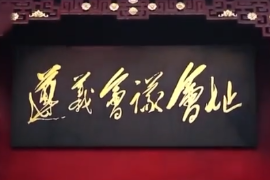 遵義會议會址